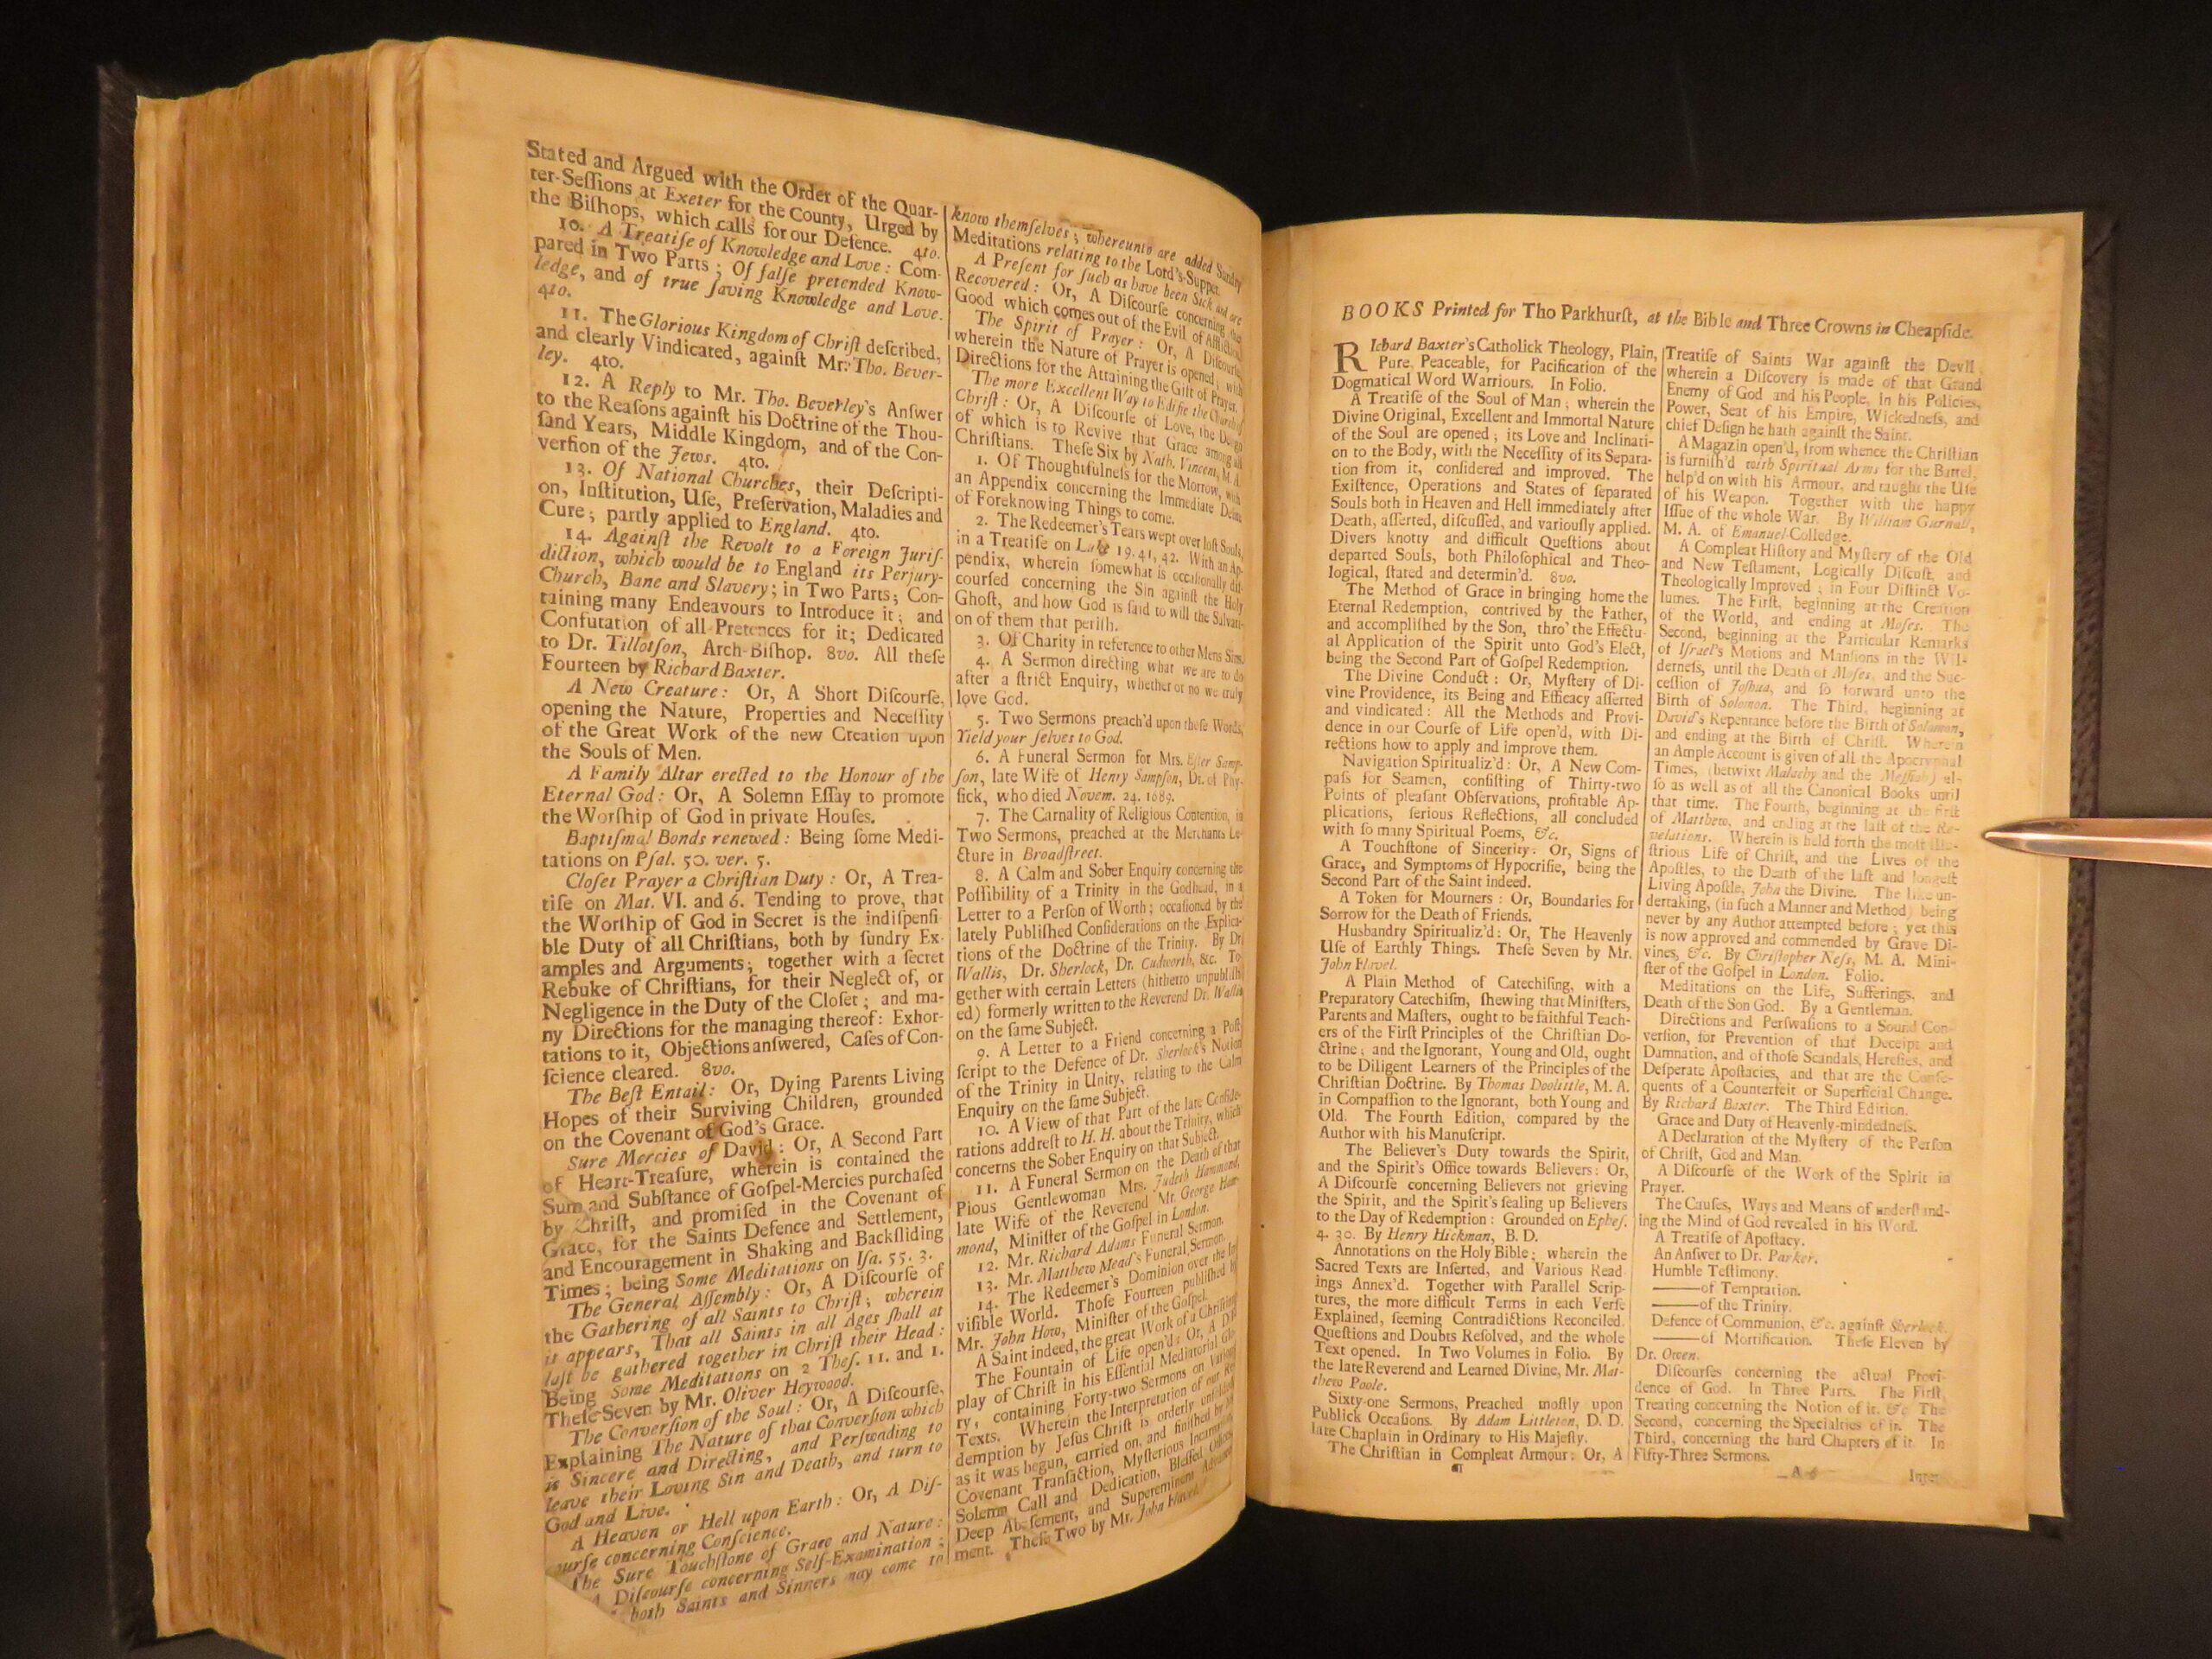 Stated and Argued with the Order of the Quar-
ter-Seſſions at Exeter for the County, Urged by
the Biſhops, which calls for our Defence. 4to.
10. A Treatiſe of Knowledge and Love: Com-
pared in Two Parts; Of falſe pretended Know-
ledge, and of true ſaving Knowledge and Love.
4to.
11. The Glorious Kingdom of Chriſt deſcribed,
and clearly Vindicated, againſt Mr. Tho. Bever-
ley. 4to.
12. A Reply to Mr. Tho. Beverley's Anſwer
to the Reaſons againſt his Doctrine of the Thou-
ſand Years, Middle Kingdom, and of the Con-
verſion of the Jews. 4to.
13. Of National Churches, their Deſcripti-
on, Inſtitution, Uſe, Preſervation, Maladies and
Cure; partly applied to England. 4to.
14. Againſt the Revolt to a Foreign Juriſ-
diction, which would be to England its Perjury-
Church, Bane and Slavery; in Two Parts; Con-
taining many Endeavours to Introduce it; and
Confutation of all Pretences for it; Dedicated
to Dr. Tillotſon, Arch-Biſhop. 8vo. All theſe
Fourteen by Richard Baxter.
A New Creature: Or, A Short Diſcourſe,
opening the Nature, Properties and Neceſſity
of the Great Work of the new Creation upon
the Souls of Men.
A Family Altar erected to the Honour of the
Eternal God: Or, A Solemn Eſſay to promote
the Worſhip of God in private Houſes.
Baptiſmal Bonds renewed: Being ſome Medi-
tations on Pſal. 50. ver. 5.
Cloſet Prayer a Chriſtian Duty: Or, A Trea-
tiſe on Mat. VI. and 6. Tending to prove, that
the Worſhip of God in Secret is the indiſpenſi-
ble Duty of all Chriſtians, both by ſundry Ex-
amples and Arguments; together with a ſecret
Rebuke of Chriſtians, for their Neglect of, or
Negligence in the Duty of the Cloſet; and ma-
ny Directions for the managing thereof: Exhor-
tations to it, Objections anſwered, Caſes of Con-
ſcience cleared. 8vo.
The Beſt Entail: Or, Dying Parents Living
Hopes of their Surviving Children, grounded
on the Covenant of God's Grace.
Sure Mercies of David: Or, A Second Part
of Heart-Treaſure, wherein is contained the
Sum and Subſtance of Goſpel-Mercies purchaſed
by Chriſt, and promiſed in the Covenant of
Grace, for the Saints Defence and Settlement,
and Encouragement in Shaking and Backſliding
Times; being Some Meditations on Iſa. 55. 3.
The General Aſſembly: Or, A Diſcourſe of
the Gathering of all Saints to Chriſt; wherein
it appears, That all Saints in all Ages ſhall at
laſt be gathered together in Chriſt their Head:
Being Some Meditations on 2 Theſ. 11. and 1.
Theſe Seven by Mr. Oliver Heywood.
The Converſion of the Soul: Or, A Diſcourſe,
Explaining The Nature of that Converſion which
is Sincere and Directing, and Perſwading to
leave their Loving Sin and Death, and turn to
God and Live.
A Heaven or Hell upon Earth: Or, A Diſ-
urſe concerning Conſcience.
The Sure Touchſtone of Grace and Nature:
A Diſcourſe concerning Self-Examination;
both Saints and Sinners may come to
know themſelves; whereunto are added Sundry
Meditations relating to the Lord's-Supper.
A Preſent for ſuch as have been Sick and are
Recovered: Or, A Diſcourſe concerning the
Good which comes out of the Evil of Affliction.
The Spirit of Prayer: Or, A Diſcourſe,
wherein the Nature of Prayer is opened, with
Directions for the Attaining the Gift of Prayer.
The more Excellent Way to Edifie the Church of
Chriſt: Or, A Diſcourſe of Love, the Deſign
of which is to Revive that Grace among all
Chriſtians. Theſe Six by Nath. Vincent, M. A.
1. Of Thoughtfulneſs for the Morrow, with
an Appendix concerning the Immediate Deſire
of Foreknowing Things to come.
2. The Redeemer's Tears wept over loſt Souls,
in a Treatiſe on Luke 19. 41, 42. With an Ap-
pendix, wherein ſomewhat is occaſionally diſ-
courſed concerning the Sin againſt the Holy
Ghoſt, and how God is ſaid to will the Salvati-
on of them that periſh.
3. Of Charity in reference to other Mens Sins.
4. A Sermon directing what we are to do
after a ſtrict Enquiry, whether or no we truly
love God.
5. Two Sermons preach'd upon thoſe Words,
Yield your ſelves to God.
6. A Funeral Sermon for Mrs. Eſter Samp-
ſon, late Wife of Henry Sampſon, Dr. of Phy-
ſick, who died Novem. 24. 1689.
7. The Carnality of Religious Contention, in
Two Sermons, preached at the Merchants Le-
cture in Broadſtreet.
8. A Calm and Sober Enquiry concerning the
Poſſibility of a Trinity in the Godhead, in a
Letter to a Perſon of Worth; occaſioned by the
lately Publiſhed Conſiderations on the Explica-
tions of the Doctrine of the Trinity. By Dr.
Wallis, Dr. Sherlock, Dr. Cudworth, &c. To-
gether with certain Letters (hitherto unpubliſh-
ed) formerly written to the Reverend Dr. Wallis
on the ſame Subject.
9. A Letter to a Friend concerning a Poſt-
ſcript to the Defence of Dr. Sherlock's Notion
of the Trinity in Unity, relating to the Calm
Enquiry on the ſame Subject.
10. A View of that Part of the late Conſide-
rations addreſt to H. H. about the Trinity, which
concerns the Sober Enquiry on that Subject.
11. A Funeral Sermon on the Death of that
Pious Gentlewoman Mrs. Judeth Hammond,
late Wife of the Reverend Mr. George Ham-
mond, Miniſter of the Goſpel in London.
12. Mr. Richard Adams Funeral Sermon.
13. Mr. Matthew Mead's Funeral Sermon.
14. The Redeemer's Dominion over the In-
viſible World. Thoſe Fourteen publiſhed by
Mr. John How, Miniſter of the Goſpel.
A Saint indeed, the great Work of a Chriſtian
The Fountain of Life open'd: Or, A Diſ-
play of Chriſt in his Eſſential Mediatorial Glo-
ry, containing Forty-two Sermons on Various
Texts. Wherein the Interpretation of our Re-
demption by Jeſus Chriſt is orderly unfolded
as it was begun, carried on, and finiſhed by his
Covenant Tranſaction, Myſterious Incarnation,
Solemn Call and Dedication, Bleſſed Offices,
Deep Abaſement, and Supereminent Advance-
ment. Theſe Two by Mr. John Flavel.
BOOKS Printed for Tho Parkhurſt, at the Bible and Three Crowns in Cheapſide.
RIchard Baxter's Catholick Theology, Plain,
Pure, Peaceable, for Pacification of the
Dogmatical Word Warriours. In Folio.
A Treatiſe of the Soul of Man; wherein the
Divine Original, Excellent and Immortal Nature
of the Soul are opened; its Love and Inclinati-
on to the Body, with the Neceſſity of its Separa-
tion from it, conſidered and improved. The
Exiſtence, Operations and States of ſeparated
Souls both in Heaven and Hell immediately after
Death, aſſerted, diſcuſſed, and variouſly applied.
Divers knotty and difficult Queſtions about
departed Souls, both Philoſophical and Theo-
logical, ſtated and determin'd. 8vo.
The Method of Grace in bringing home the
Eternal Redemption, contrived by the Father,
and accompliſhed by the Son, thro' the Effectu-
al Application of the Spirit unto God's Elect,
being the Second Part of Goſpel Redemption.
The Divine Conduct: Or, Myſtery of Di-
vine Providence, its Being and Efficacy aſſerted
and vindicated: All the Methods and Provi-
dence in our Courſe of Life open'd, with Di-
rections how to apply and improve them.
Navigation Spiritualiz'd: Or, A New Com-
paſs for Seamen, conſiſting of Thirty-two
Points of pleaſant Obſervations, profitable Ap-
plications, ſerious Reflections, all concluded
with ſo many Spiritual Poems, &c.
A Touchſtone of Sincerity: Or, Signs of
Grace, and Symptoms of Hypocriſie, being the
Second Part of the Saint indeed.
A Token for Mourners: Or, Boundaries for
Sorrow for the Death of Friends.
Husbandry Spiritualiz'd: Or, The Heavenly
Uſe of Earthly Things. Theſe Seven by Mr.
John Flavel.
A Plain Method of Catechiſing, with a
Preparatory Catechiſm, ſhewing that Miniſters,
Parents and Maſters, ought to be faithful Teach-
ers of the Firſt Principles of the Chriſtian Do-
ctrine; and the Ignorant, Young and Old, ought
to be Diligent Learners of the Principles of the
Chriſtian Doctrine. By Thomas Doolittle, M. A.
in Compaſſion to the Ignorant, both Young and
Old. The Fourth Edition, compared by the
Author with his Manuſcript.
The Believer's Duty towards the Spirit,
and the Spirit's Office towards Believers: Or,
A Diſcourſe concerning Believers not grieving
the Spirit, and the Spirit's ſealing up Believers
to the Day of Redemption: Grounded on Epheſ.
4. 30. By Henry Hickman, B. D.
Annotations on the Holy Bible; wherein the
Sacred Texts are Inſerted, and Various Read
ings Annex'd. Together with Parallel Scrip-
tures, the more difficult Terms in each Verſe
Explained, ſeeming Contradictions Reconciled.
Queſtions and Doubts Reſolved, and the whole
Text opened. In Two Volumes in Folio. By
the late Reverend and Learned Divine, Mr. Mat-
thew Poole.
Sixty-one Sermons, Preached moſtly upon
Publick Occaſions. By Adam Littleton, D. D.
late Chaplain in Ordinary to His Majeſty.
The Chriſtian in Compleat Armour: Or, A
¶
Treatiſe of Saints War againſt the Devil,
wherein a Diſcovery is made of that Grand
Enemy of God and his People, in his Policies,
Power, Seat of his Empire, Wickedneſs, and
chief Deſign he hath againſt the Saint.
A Magazin open'd, from whence the Chriſtian
is furniſh'd with Spiritual Arms for the Battel,
help'd on with his Armour, and taught the Uſe
of his Weapon. Together with the happy
Iſſue of the whole War. By William Gurnall,
M. A. of Emanuel-Colledge.
A Compleat Hiſtory and Myſtery of the Old
and New Teſtament, Logically Diſcuſt, and
Theologically Improved; in Four Diſtinct Vo-
lumes. The Firſt, beginning at the Creation
of the World, and ending at Moſes. The
Second, beginning at the Particular Remarks
of Iſrael's Motions and Manſions in the Wil-
derneſs, until the Death of Moſes, and the Suc-
ceſſion of Joſhua, and ſo forward unto the
Birth of Solomon. The Third, beginning at
David's Repentance before the Birth of Solomon,
and ending at the Birth of Chriſt. Wherein
an Ample Account is given of all the Apocryphal
Times, (betwixt Malachy and the Meſſiah) al-
ſo as well as of all the Canonical Books until
that time. The Fourth, beginning at the firſt
of Matthew, and ending at the laſt of the Re-
velations. Wherein is held forth the moſt Illu-
ſtrious Life of Chriſt, and the Lives of the
Apoſtles, to the Death of the laſt and longeſt
Living Apoſtle, John the Divine. The like un-
dertaking, (in ſuch a Manner and Method) being
never by any Author attempted before; yet this
is now approved and commended by Grave Di-
vines, &c. By Chriſtopher Neſs, M. A. Mini-
ſter of the Goſpel in London. Folio.
Meditations on the Life, Sufferings, and
Death of the Son God. By a Gentleman.
Directions and Perſwaſions to a Sound Con-
verſion, for Prevention of that Deceipt and
Damnation, and of thoſe Scandals, Hereſies, and
Deſperate Apoſtacies, and that are the Conſe-
quents of a Counterfeit or Superficial Change.
By Richard Baxter. The Third Edition.
Grace and Duty of Heavenly-mindedneſs.
A Declaration of the Myſtery of the Perſon
of Chriſt, God and Man.
A Diſcourſe of the Work of the Spirit in
Prayer.
The Cauſes, Ways and Means of underſtand-
ing the Mind of God revealed in his Word.
A Treatiſe of Apoſtacy.
An Anſwer to Dr. Parker.
Humble Teſtimony.
——of Temptation.
——of the Trinity.
Defence of Communion, &c. againſt Sherlock.
——of Mortification. Theſe Eleven by
Dr. Owen.
Diſcourſes concerning the actual Provi-
dence of God. In Three Parts. The Firſt,
Treating concerning the Notion of it, &c. The
Second, concerning the Specialties of it. The
Third, concerning the hard Chapters of it. In
Fifty-Three Sermons.